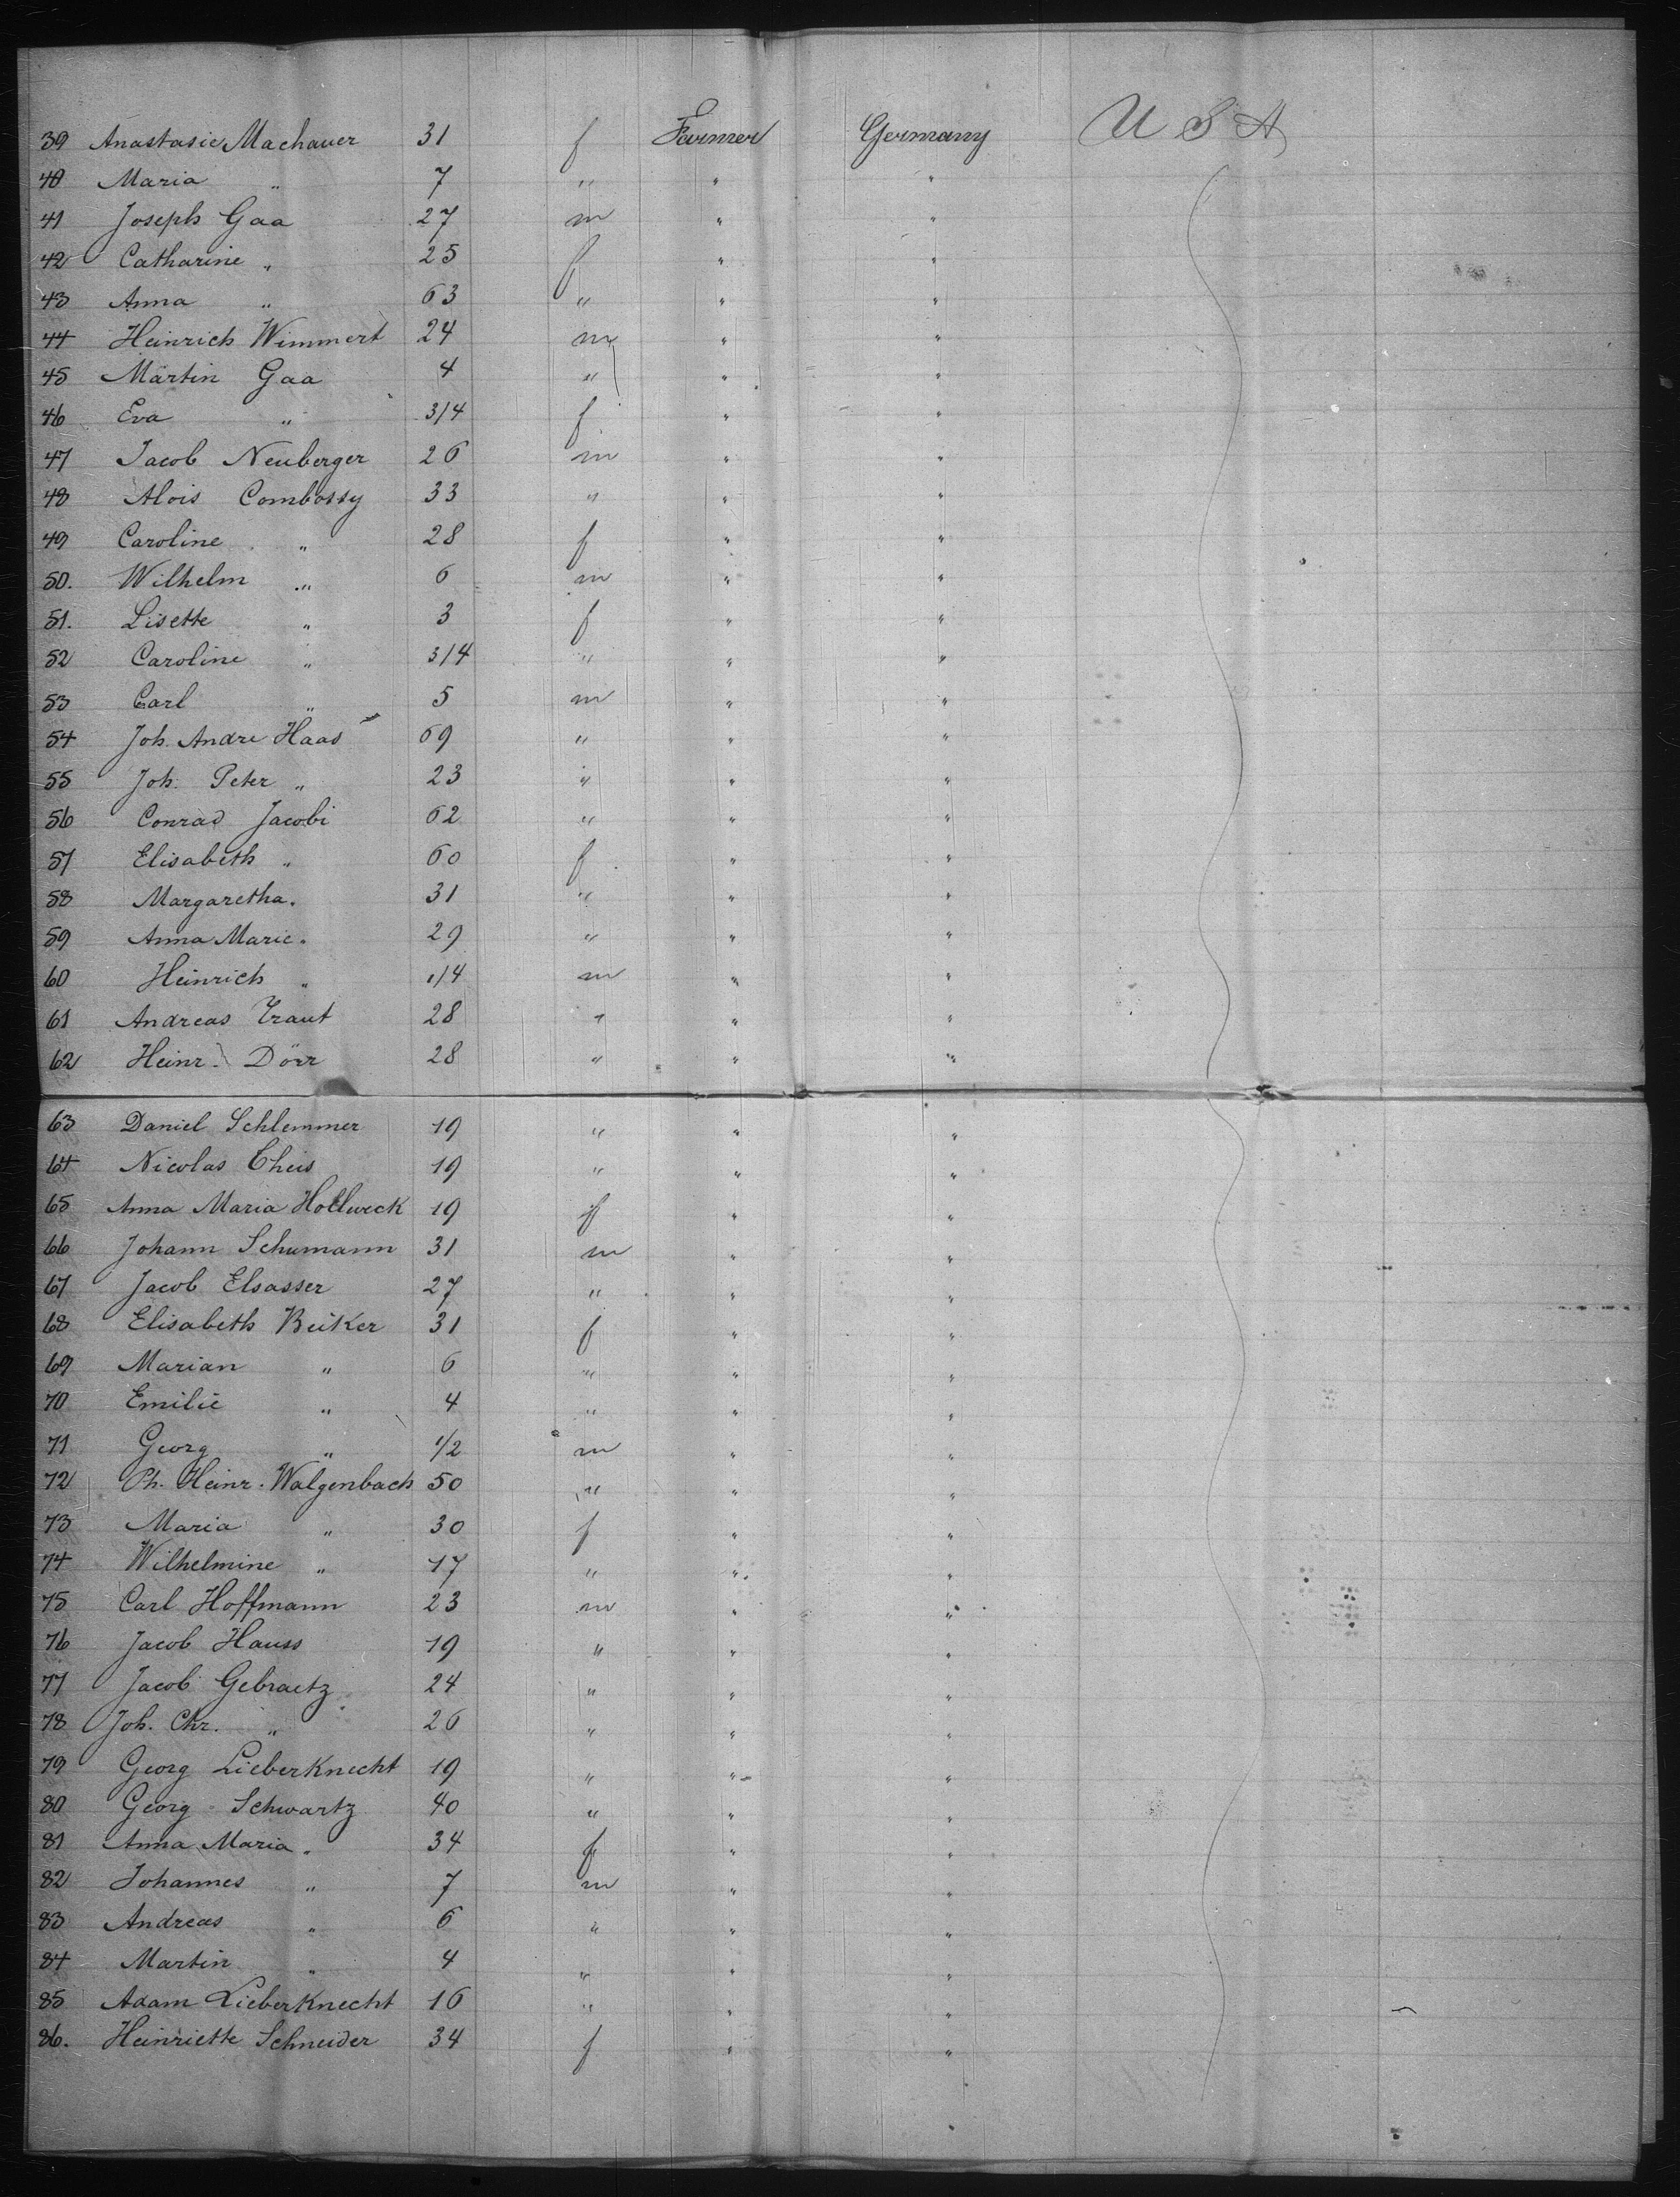 39 Anastasie Machauer 31 f Farmer Germany U S A
40 Maria " 7 " " "
41 Joseph Gaa 27 m " "
42 Catharine " 25 f " "
43 Anna " 63 " " "
44 Heinrich Wimmert 24 m " "
45 Martin Gaa 4 " " "
46 Eva " 3/4 f " "
47 Jacob Neuberger 26 m " "
48 Alois Combossy 33 " " "
49 Caroline " 28 f " "
50. Wilhelm " 6 m " "
51. Lisette " 3 f " "
52 Caroline " 3/4 " " "
53 Carl " 5 m " "
54 Joh. Andre Haas 69 " " "
55 Joh. Peter " 23 " " "
56 Conrad Jacobi 62 " " "
57 Elisabeth " 60 f " "
58 Margaretha " 31 " " "
59 Anna Marie " 29 " " "
60 Heinrich " 1/4 m " "
61 Andreas Traut 28 " " "
62 Heinr. Dörr 28 " " "
63 Daniel Schlemmer 19 " " "
64 Nicolas Theis 19 " " "
65 Anna Maria Hollweck 19 f " "
66 Johann Schumann 31 m " "
67 Jacob Elsasser 27 " " "
68 Elisabeth Beiker 31 f " "
69 Marian " 6 " " "
70 Emilie " 4 " " "
71 Georg " 1/2 m " "
72 Ph. Heinr. Walgenbach 50 " " "
73 Maria " 30 f " "
74 Wilhelmine " 17 " " "
75 Carl Hoffmann 23 m " "
76 Jacob Hauss 19 " " "
77 Jacob Gebraetz 24 " " "
78 Joh. Chr. " 26 " " "
79 Georg Lieberknecht 19 " " "
80 Georg Schwartz 40 " " "
81 Anna Maria " 34 f " "
82 Johannes " 7 m " "
83 Andreas " 6 " " "
84 Martin " 4 " " "
85 Adam Lieberknecht 16 " " "
86. Heinriette Schneider 34 f " "